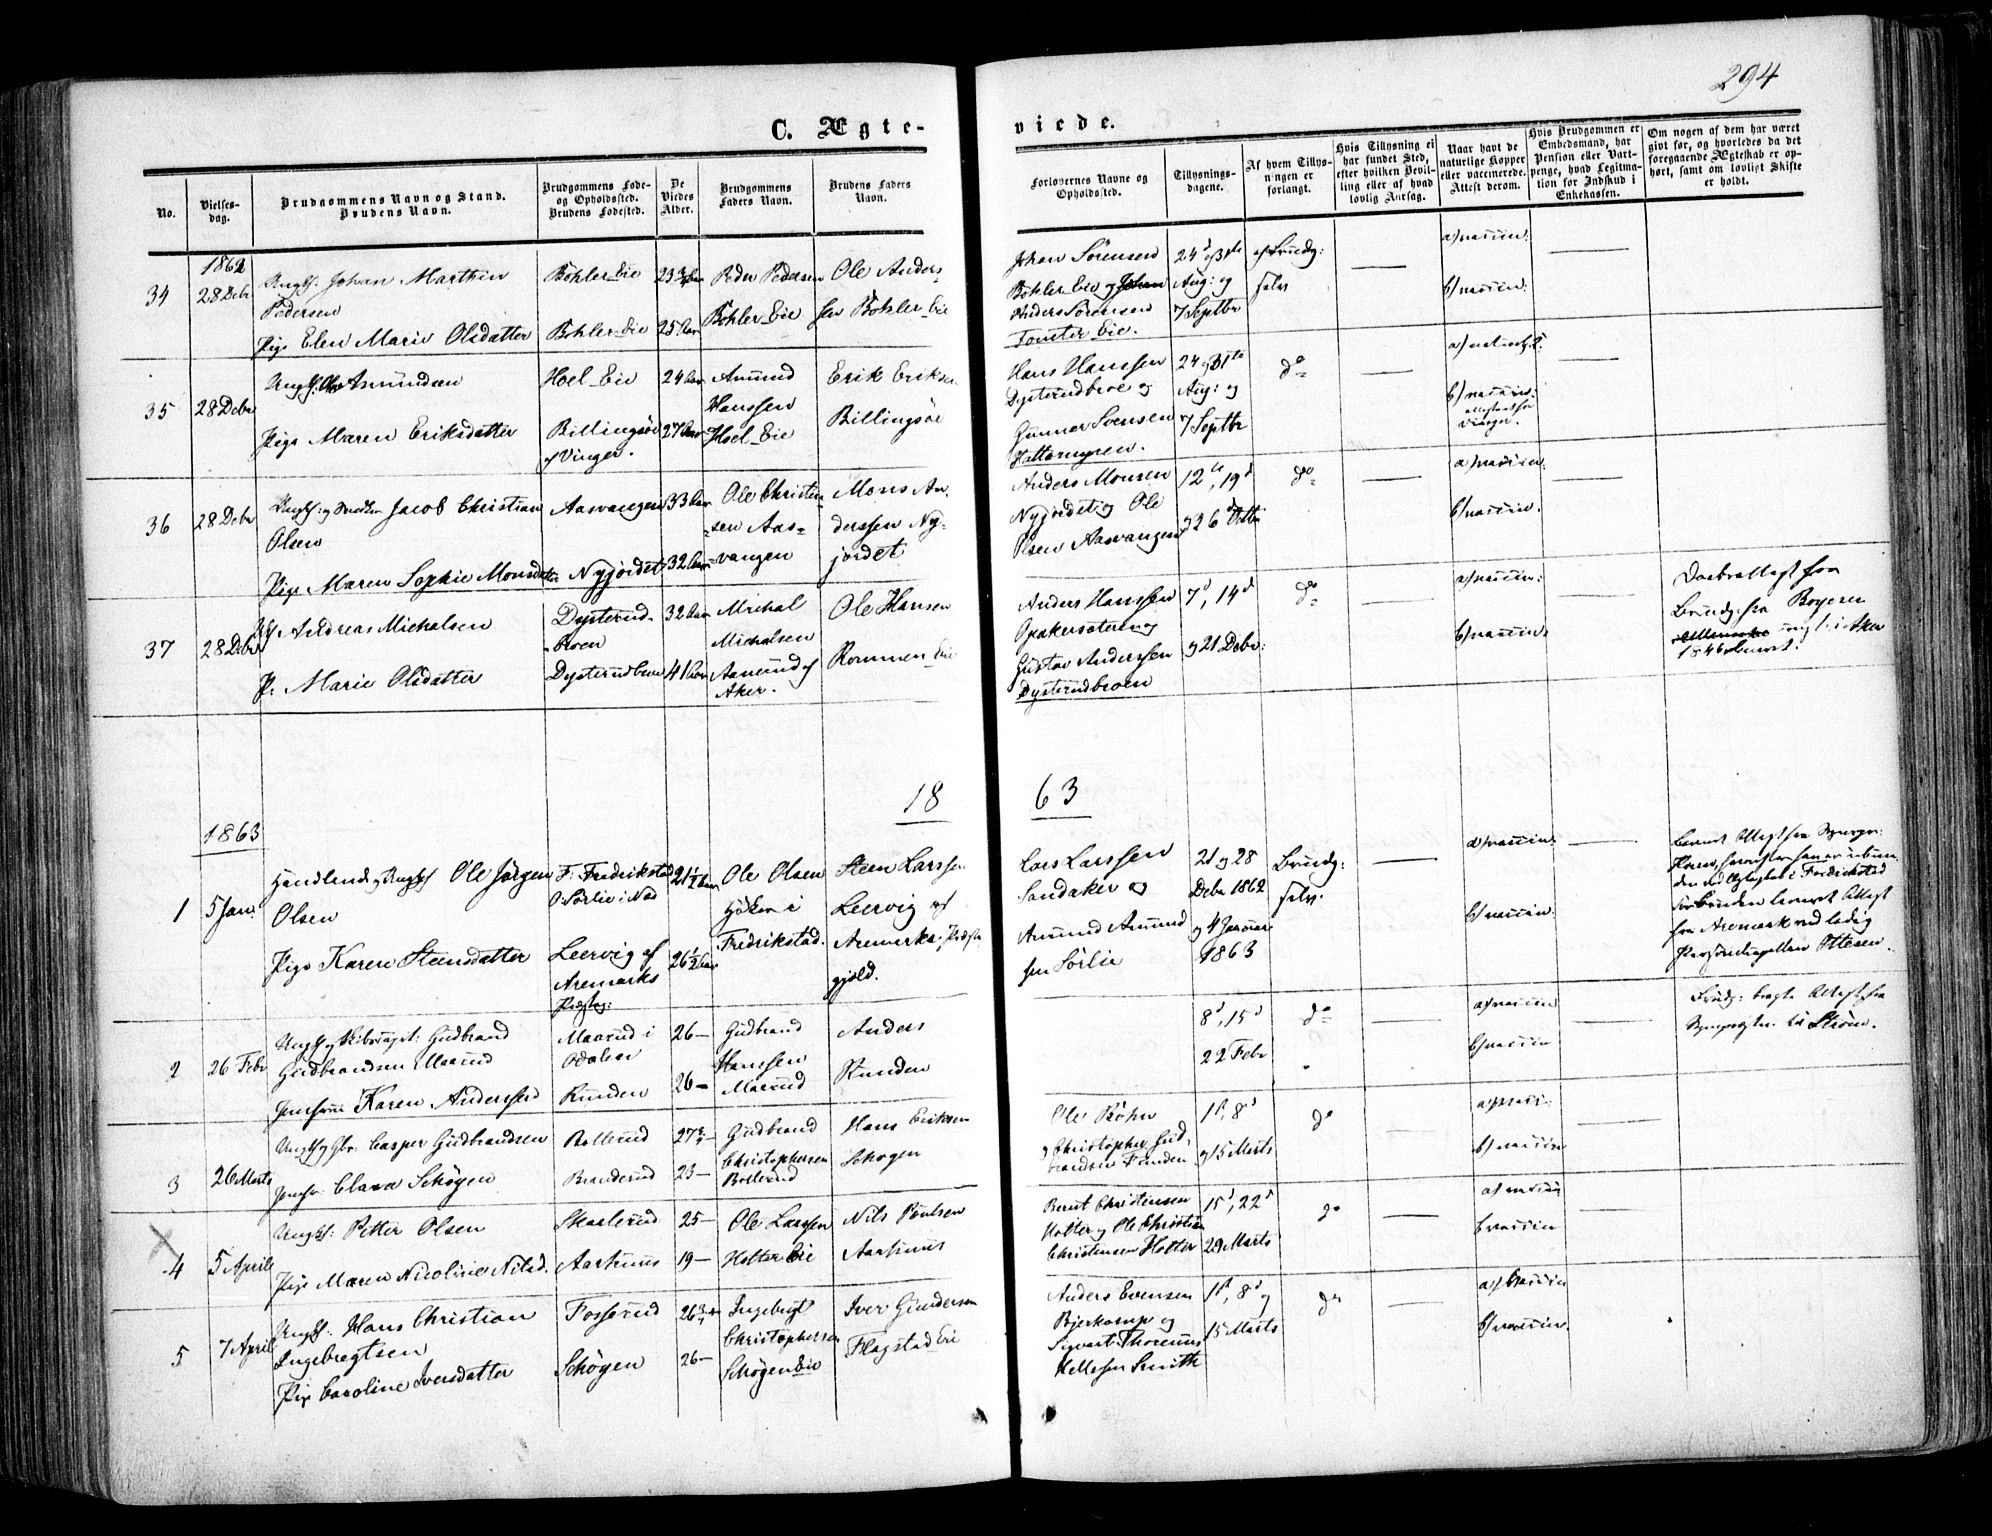 294
C. Ægte-
viede.
No.
Vielses-
dag.
Brudgommens Navn og Stand.
Brudens Navn.
Brudgommens Føde-
og Opholdssted.
Brudens Fødested.
De
Viedes
Alder.
Brudgommens
Faders Navn.
Brudens Faders
Navn.
Forlovernes Navne og
Opholdssted.
Tillysnings-
dagene.
Af hvem Tillys-
ningen er
forlangt.
Hvis Tillysning ei
har fundet Sted,
efter hvilken Bevil-
ling eller af hvad
lovlig Aarsag.
Naar havt de
naturlige Kopper
eller vaccinerede.
Attest derom.
Hvis Brudgommen er
Embedsmand, har
Pension eller Vart-
penge, hvad Legitima-
tion for Indskud i
Enkekassen.
Om nogen af dem har været
gift før, og hvorledes da det
foregaaende Ægteskab er op-
hørt, samt om lovligt Skifte
er holdt.
1862
34
28 Debr
Ungk: Johan Marthin
Pedersen
Pige Elen Marie Olsdatter
Bøhler Eie
Bøhler Eie
23 3/4 Aar
25 Aar
Peder Pedersen
Bøhler Eie
Ole Anders
sen Bøhler Eie
Johan Sörensen
Bøhler Eie og Johan
Anders Sörensen
Tomter Eie.
24d og 31te
Aug: og
7 Septbr
af Brudg:
selv
a/ vaccin:
b/ vaccin:
35
28 Debr
Ungk: Ole Asmundsen
Pige Maren Eriksdatter
Hoel Eie
Billingsöe
af Vinger.
24 Aar
27 Aar
Hanssen
Hoel Eie
Erik Eriksen
Billingsöe
Hans Hanssen
Dysterudbroe og
Gunner Svensen
Hattemyren.
24 og 31te
Aug: og
7 Septbr
do
b/ vaccin:
Vinger.
36
28 Debr
Jacob Christian
Olsen
Pige Maren Sophie Monsdatter
Aasvangen
Nyjordet
33 Aar
32 Aar
Ole Christen
sen Aas=
vangen
Mons An
derssen Ny=
jordet
Anders Monsen
Nyjordet og Ole
Olsen Aasvangen
12te, 19d
og 26d Octbr
do
a/ vaccin:
b/ vaccin.
37
28 Debr
Andreas Michalsen
P: Marie Olsdatter
Dysterud-
broen
Dysterudbroe
32 Aar
41 Aar
Michal
Michalsen
Asmund af
Aker.
Ole Hansen
Rommen Eie
Anders Hanssen
Opakersæteren og
Gustav Anderssen
Dysterudbroen
7d, 14d
og 21 Debr:
do
a/ vaccin:
b/ vaccin:
Daabsattest fra
Brudg: fra
1863
18
63
1
5 Jan:
Handlende og Ungk: Ole Jörgen
Olsen
Pige Karen Steensdatter
F: Fredrikstad
O: Sörlie i Næs
Leervig af
Aremarks
Præstg:
21 1/2 Aar
26 1/2 Aar
Ole Olsen
Høker i
Fredrikstad.
Steen Larssen
Leervig af
Aremarks Præste
gjeld.
Lars Larssen
Sandaker og
Amund Amund
sen Sörlie
21 og 28
Debr 1862
og 4 Januar
1863
Brudg:
selv.
a/ vaccin:
b/ vaccin:
fra Aremark ved
Personelcapellan Ottesen.
2
26 Febr
Gudbrand
Gudbrandsen Maarud
Jomfrue Karen Anderssen
Maarud i
Odalen
Runden
26 —
26 —
Gudbrand
Hanssen
Maarud
Anders
Runden
8d, 15d
22 Febr
do
a/ vaccin
b/ vaccin
Brudg: bragte Attest fra
Ström.
3
26 Marts
Casper Gudbrandsen
Jomfr: Clara Schøyen
Bollerud
Branderud
27 3/4 —
23 —
Gudbrand
Christophersen
Bollerud
Hans Eriksen
Schøyen
Ole Röhn
og Christopher Gud-
brandsen Funden
1ste, 8d
og 15 Marts
do
b/ vaccin
4
5 April
Ungk: Petter Olsen
Pige Maren Nicoline Nilsd.
Skaslerud
Aarhuus
25 —
19 —
Ole Larssen
Holter Eie
Nils Poulsen
Aarhuus
Bernt Christensen
Holter og Ole Christian
Christensen Holter
15d, 22d
29 Marts
do
a/ vaccin
b/ vaccin
5
7 April
Ungk: Hans Christian
Ingebregtsen
Pige Caroline Iversdatter
Fosserud
Schöyen
26 3/4
26 —
Ingebregt
Christophersen
Schøyen Eie
Iver Gundersen
Flagstad Eie
Anders Evensen
Bjerkomp og
Sigvart Thorenius
Hellesen Smith
1ste, 8d og
15 Marts
do
a/ vaccin
b/ vaccin.